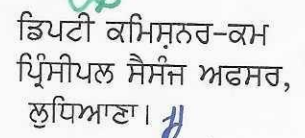 ਡਿਪਟੀ ਕਮਿਸ਼ਨਰ-ਕਮ
ਪ੍ਰਿੰਸੀਪਲ ਸੈਸੰਜ ਅਫਸਰ,
ਲੁਧਿਆਣਾ।